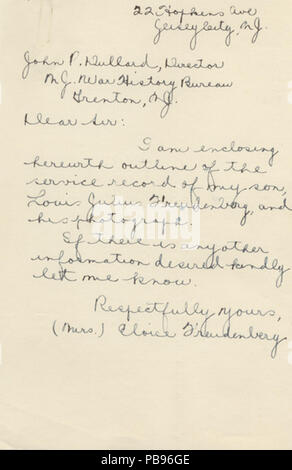 22 Hopkins Ave
Jersey City, N.J.
John P. Dullard, Director
N.J. War History Bureau
Trenton, N.J.
Dear Sir:
I am enclosing
herewith outline of the
service record of my son,
Louis Julius Freudenberg, and
his photograph.
If there is any other
information desired kindly
let me know.
Respectfully yours,
(Mrs.) Eloice Freudenberg
alamy
alamy
Image ID: PB96GE
www.alamy.com